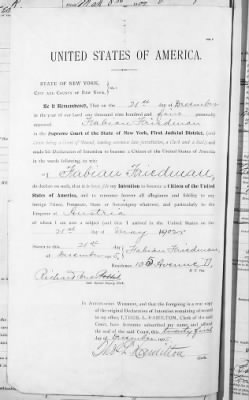 UNITED STATES OF AMERICA.
STATE OF NEW YORK,
CITY AND COUNTY OF NEW YORK,
Be it Remembered, That on the 21st day of December
in the year of our Lord one thousand nine hundred and
personally appeared Fabian Friedman
in the Supreme Court of the State of New York, First Judicial District, (said
Court being a Court of Record, having common law jurisdiction, a Clerk and a Seal) and
made his Declaration of Intention to become a Citizen of the United States of America
in the words following, to wit:
I, Fabian Friedman,
do declare on oath, that it is bona fide my Intention to become a Citizen of the United
States of America, and to renounce forever all allegiance and fidelity to any
foreign Prince, Potentate, State or Sovereignty whatever, and particularly to the
Emperor of Austria
of whom I am now a subject and that I arrived in the United States on the
21st day of May 190
Sworn to this 21st
day of December 190 Fabian Friedman
Residence Avenue D.
N. Y. City.
IN ATTESTATION WHEREOF, and that the foregoing is a true copy
of the original Declaration of Intention remaining of record
in my office, I, THOS. L. HAMILTON, Clerk of the said
Court, have hereunto subscribed my name and affixed
the seal of the said Court, this twenty first
day of December, 190
Thos. L. Hamilton
Clerk.